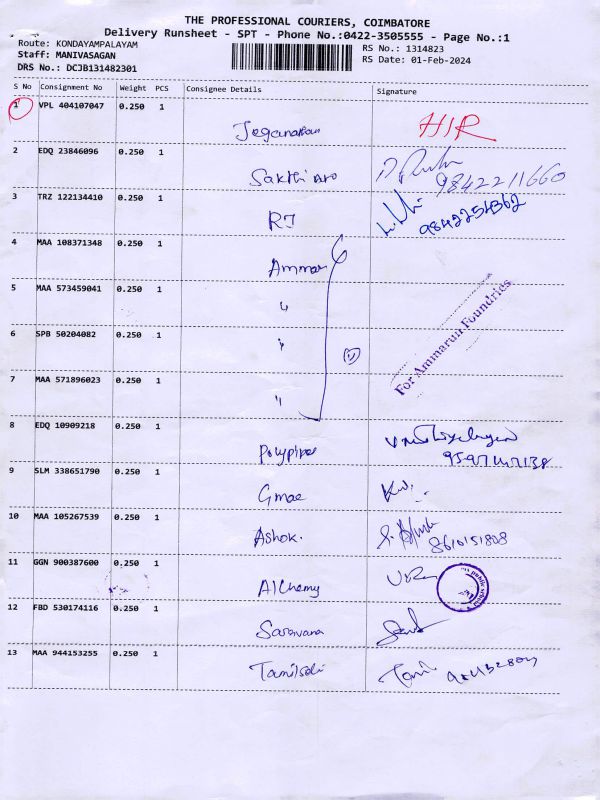 THE PROFESSIONAL COURIERS, COIMBATORE
Delivery Runsheet - SPT - Phone No.:0422-3505555 - Page No.:1
Route: KONDAYAMPALAYAM
Staff: MANIVASAGAN
DRS No.: DCJB131482301
RS No.: 1314823
RS Date: 01-Feb-2024
S No Consignment No Weight PCS Consignee Details Signature
1 VPL 404107047 0.250 1
Jeganathan HIR
2 EDQ 23846096 0.250 1
Sakthi Auto 9842211660
3 TRZ 122134410 0.250 1
RJ
4 MAA 108371348 0.250 1
Ammar
5 MAA 573459041 0.250 1
"
6 SPB 50204082 0.250 1
"
For Ammarun Foundries
7 MAA 571896023 0.250 1
"
8 EDQ 10909218 0.250 1
Polypipes
9 SLM 338651790 0.250 1
Gmae
10 MAA 105267539 0.250 1
Ashok. 8610151808
11 GGN 900387600 0.250 1
Alchemy
12 FBD 530174116 0.250 1
Saravana
13 MAA 944153255 0.250 1
Tamilselvi Tamil